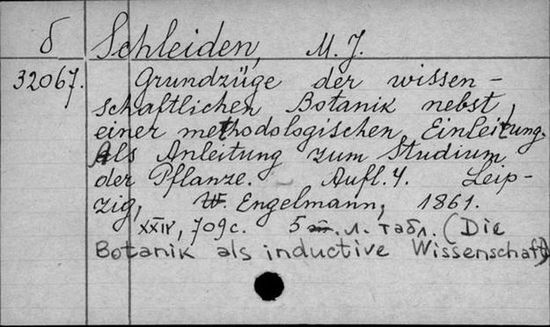 б Schleiden, M. J.
32067. Grundzüge der wissen-
schaftlichen Botanik nebst
einer methodologischen Einleitung.
Als Anleitung zum Studium
der Pflanze. Aufl. 4. Leip-
zig, W. Engelmann, 1861.
XXIV, 709 с. 5 л. табл. (Die
Botanik als inductive Wissenschaft)